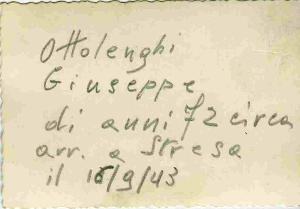 Ottolenghi
Giuseppe
di anni 72 circa
arr. a Stresa
il 16/9/43